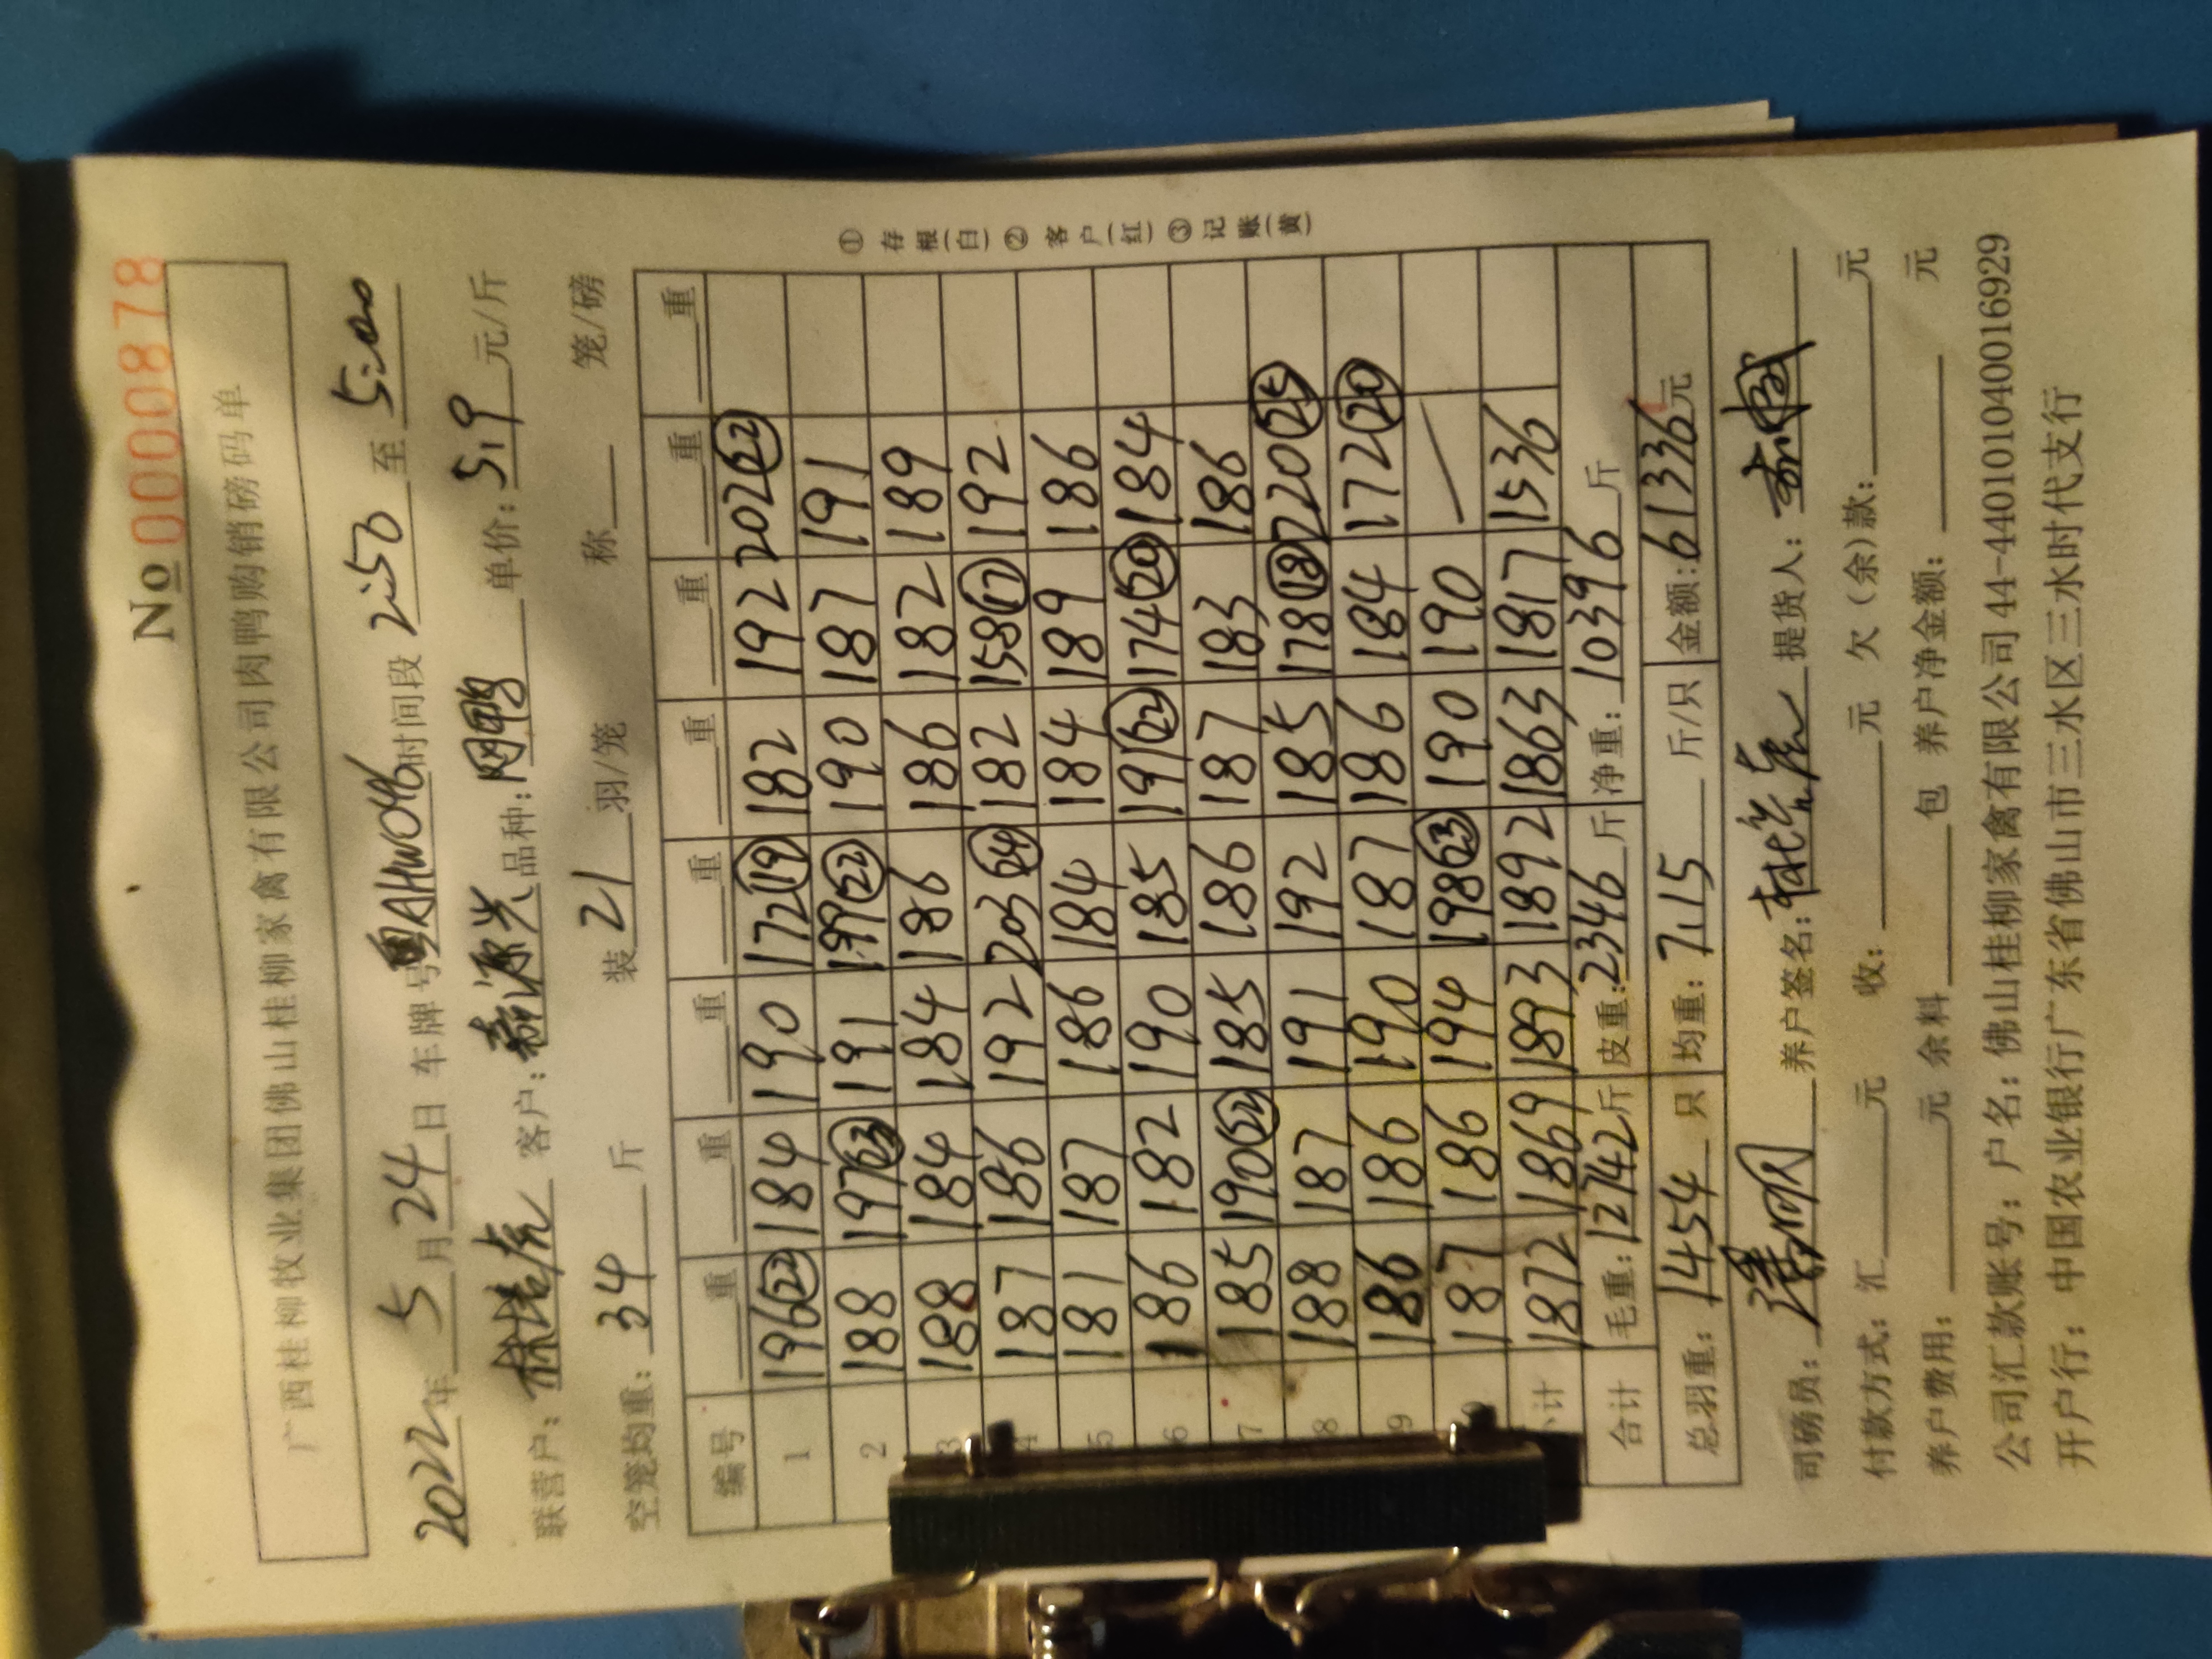 No 0000878
广西桂柳牧业集团佛山桂柳家禽有限公司肉鸭购销磅码单
2022年 5 月 24 日 车牌号 粤AHW046 时间段 2:50 至 5:00
联营户: 林培虎 客户: 新源兴 品种: 网鸭 单价: 5.9 元/斤
空笼均重: 34 斤 装 21 羽/笼 称 笼/磅
编号 重 重 重 重 重 重 重
1 196(22) 184 190 172(19) 182 192 202(22)
2 188 197(23) 191 199(22) 190 187 191
3 188 184 184 186 186 182 189
4 187 186 192 203(24) 182 158(17) 192
5 181 187 186 184 184 189 186
6 186 182 190 185 191(22) 174(20) 184
7 185 190(22) 185 186 187 183 186
8 188 187 191 192 185 178(18) 220(25)
9 186 186 190 187 186 184 172(20)
187 186 194 198(23) 190 190 —
小计 1872 1869 1893 1892 1863 1817 1536
合计 毛重: 12742 斤 皮重: 2346 斤 净重: 10396 斤
总羽重: 1454 只 均重: 7.15 斤/只 金额: 61336 元
① 存根(白) ② 客户(红) ③ 记账(黄)
司磅员: 养户签名: 林培虎 提货人:
付款方式: 汇 元 收: 元 欠(余)款: 元
养户费用: 元 余料 包 养户净金额: 元
公司汇款账号: 户名: 佛山桂柳家禽有限公司 44-440101040016929
开户行: 中国农业银行广东省佛山市三水区三水时代支行